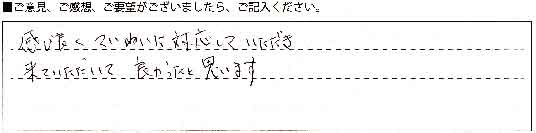 ■ご意見、ご感想、ご要望がございましたら、ご記入ください。
感じ良くていねいに対応していただき
来ていただいて 良かったと思います